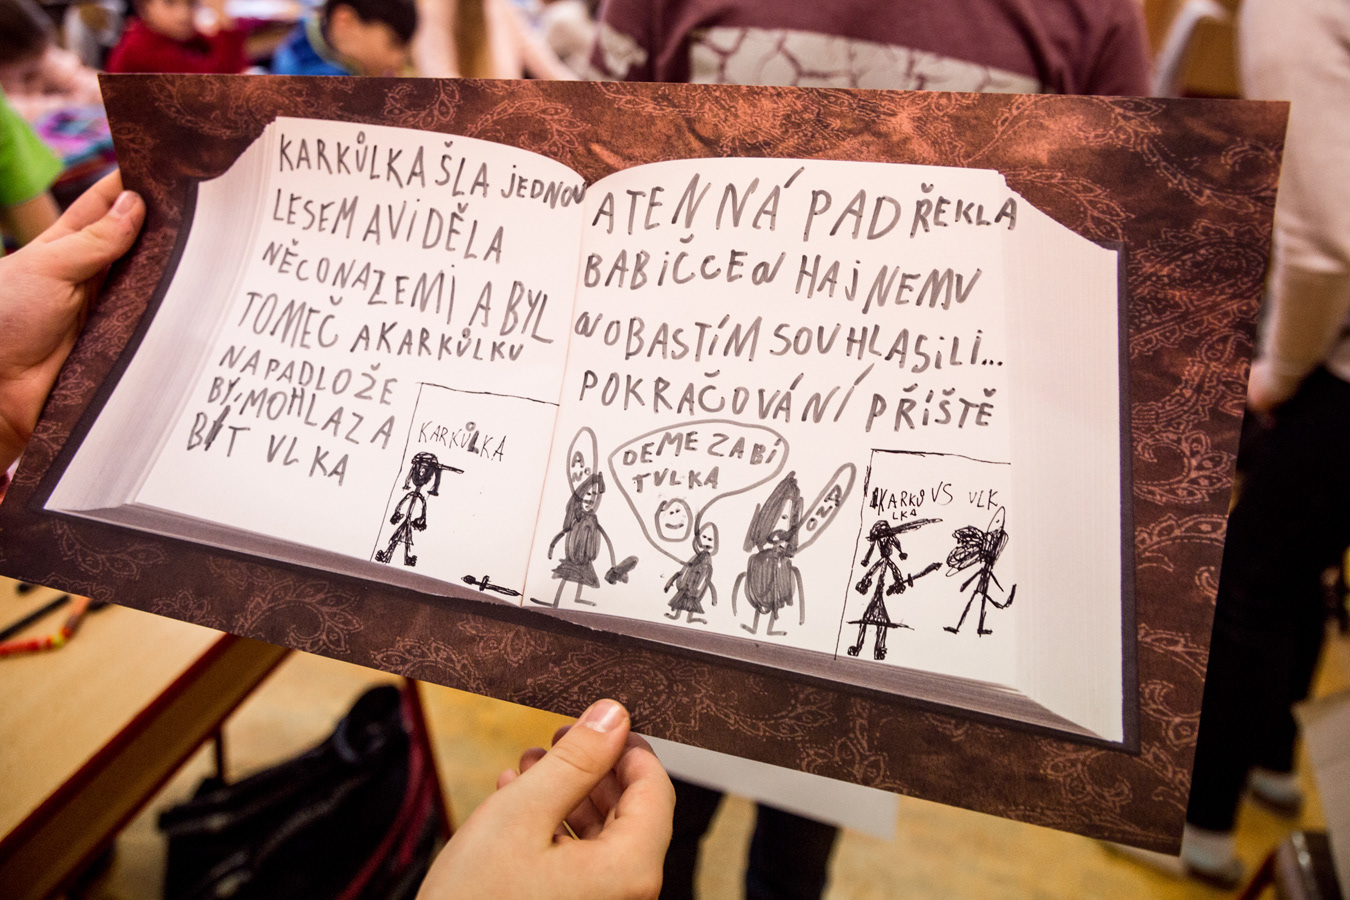 KARKŮLKA ŠLA JEDNOU
LESEM A VIDĚLA
NĚCO NA ZEMI A BYL
TO MEČ A KARKŮLKU
NAPADLO ŽE
BY, MOHLA ZA
BÍT VLKA
KARKŮLKA
A TEN NÁPAD ŘEKLA
BABIČCE A HAJNEMU
A OBA S TÍM SOUHLASILI...
POKRAČOVÁNÍ PŘÍŠTĚ
ANO
DEME ZABÍ
T VLKA
KARKŮ VS VLK
LKA